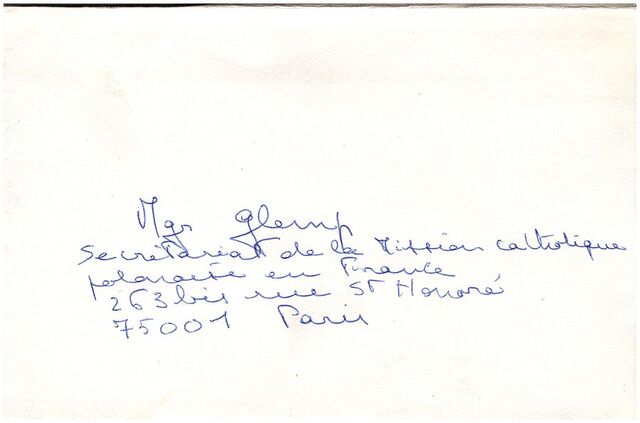 Mgr Glemp
Secrétariat de la Mission catholique
polonaise en France
263 bis rue St Honoré
75001 Paris